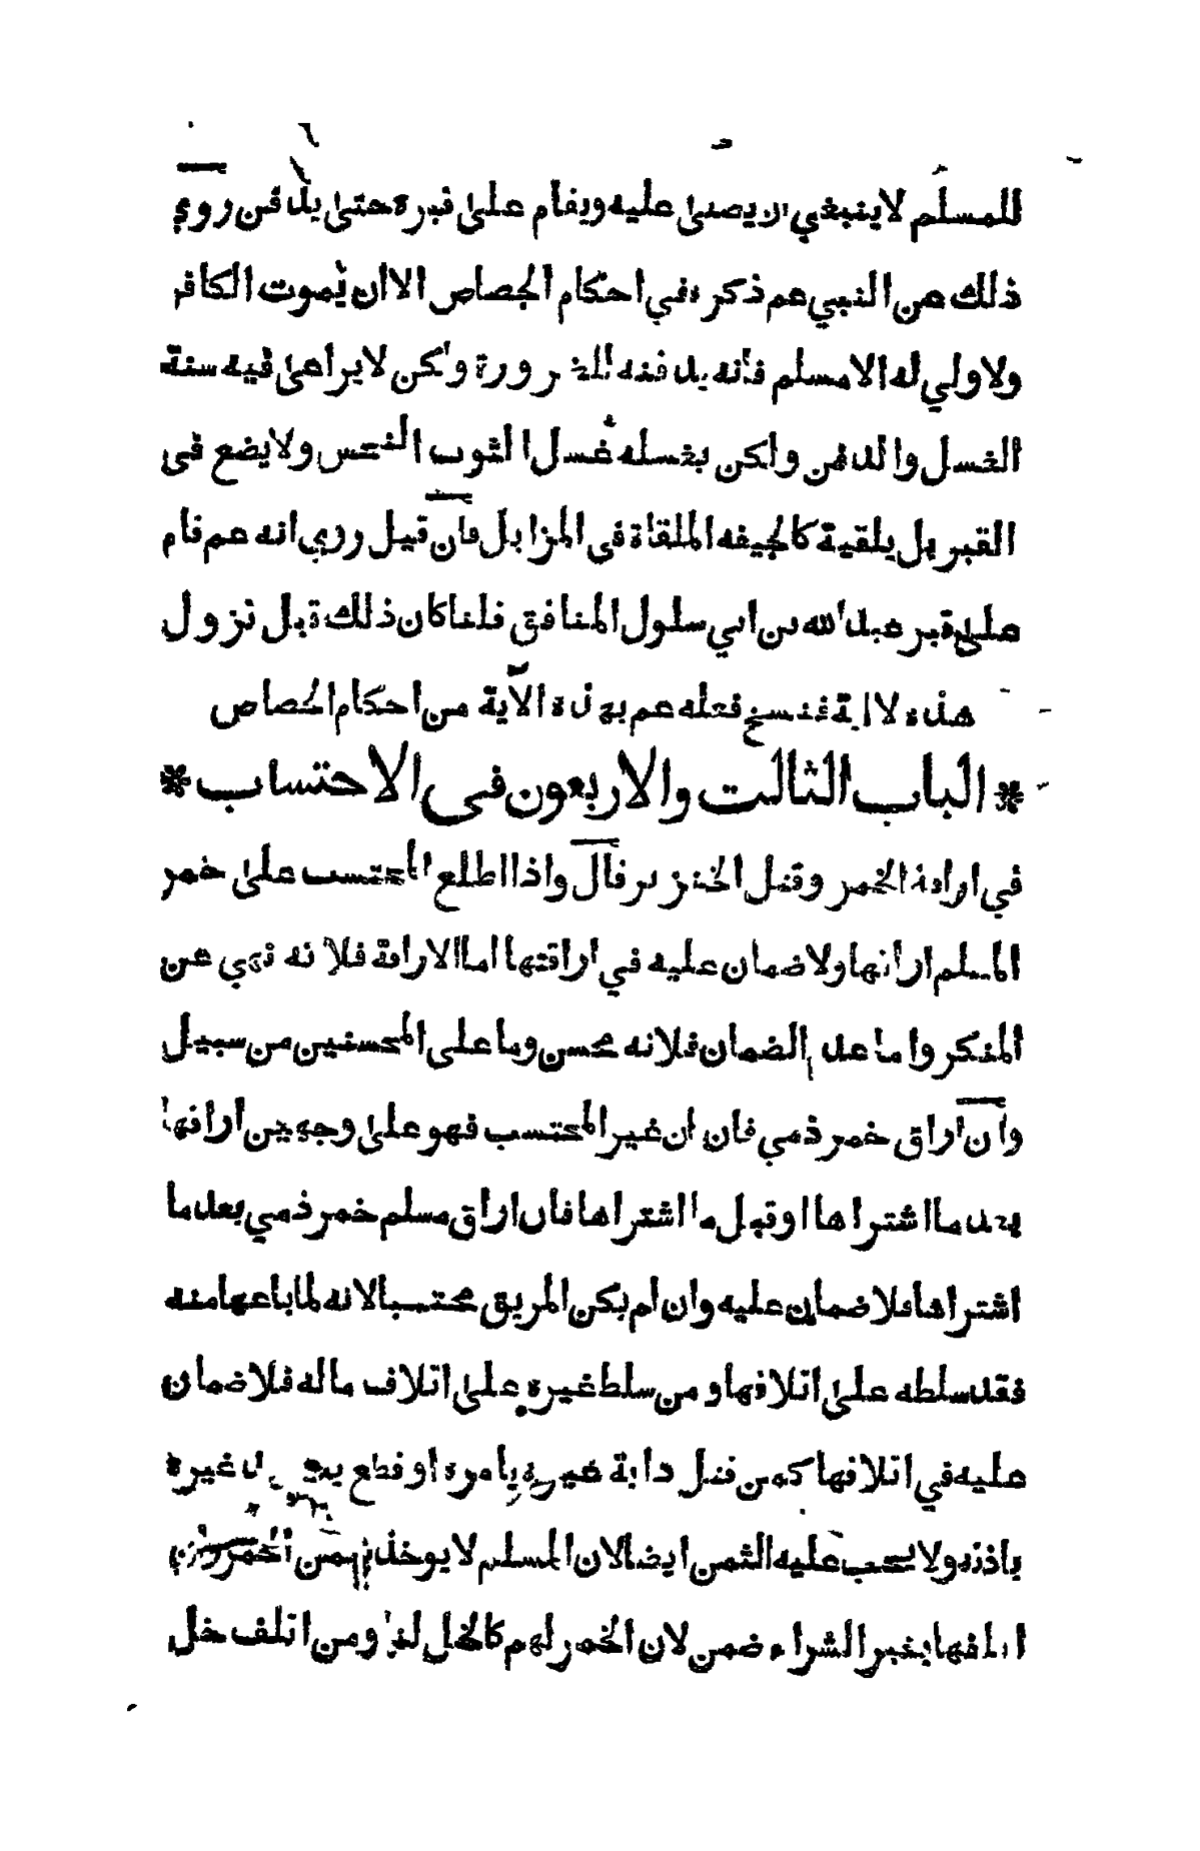 للمسلم لاينبغي ان يصلى عليه ويقام على قبره حتى يدفن روي
ذلك عن النبي عم ذكره في احكام الجصاص الا ان يموت الكافر
ولا ولي له الا مسلم فانه يدفنه للضرورة ولكن لا يراعى فيه سنة
الغسل والدفن ولكن يغسله غسل الثوب النجس ولا يضع فى
القبر بل يلقية كالجيفه الملقاة فى المزابل فان قيل روي انه عم قام
على قبر عبد الله بن ابي سلول المنافق قلنا كان ذلك قبل نزول
هذه الاية فنسخ فعله عم بهذه الآية من احكام الحصاص
* الباب الثالث والاربعون فى الاحتساب *
في اراقة الخمر وقتل الخنزير قال واذا اطلع المحتسب على خمر
المسلم اراقها ولا ضمان عليه في اراقتها اما الاراقة فلانه نهي عن
المنكر واما عدم الضمان فلانه محسن وما على المحسنين من سبيل
وان اراق خمر ذمي فان كان غير المحتسب فهو على وجهين اراقها
بعد ما اشتراها او قبل ما اشتراها فان اراق مسلم خمر ذمي بعد ما
اشتراها فلا ضمان عليه وان لم يكن المريق محتسبا لانه لما باعها منه
فقد سلطه على اتلافها ومن سلط غيره على اتلاف ماله فلا ضمان
عليه في اتلافها كمن قتل دابة غيره بامره او قطع يد غيره
باذنه ولا يجب عليه الثمن ايضا لان المسلم لا يوخذ بثمن الخمر وان
اتلفها بغير الشراء ضمن لان الخمر لهم كالخل لنا ومن اتلف خل